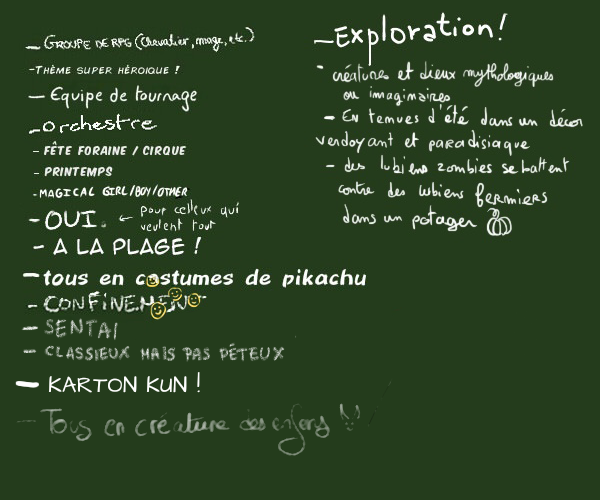 - GROUPE DE RPG (Chevalier, mage, etc.)
- THÈME SUPER HÉROIQUE !
- Equipe de tournage
- orchestre
- FÊTE FORAINE / CIRQUE
- PRINTEMPS
- MAGICAL GIRL/BOY/OTHER
- OUI. ← pour celleux qui
veulent tout
- A LA PLAGE !
- tous en costumes de pikachu
- CONFINEMENT
- SENTAI
- CLASSIEUX MAIS PAS PÉTEUX
- KARTON KUN !
- Tous en créature des enfers
- Exploration!
- créatures et dieux mythologiques
ou imaginaires
- En tenues d'été dans un décor
verdoyant et paradisiaque
- des lubiens zombies se battent
contre des lubiens fermiers
dans un potager